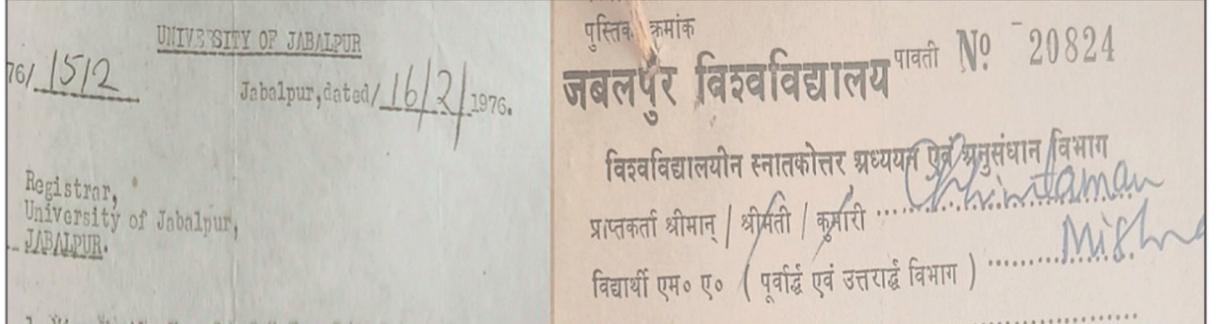 UNIVERSITY OF JABALPUR
76/ 1512
Jabalpur,dated/ 16/2/ 1976.
Registrar,
University of Jabalpur,
JABALPUR.
पुस्तिका क्रमांक
जबलपुर विश्वविद्यालय पावती Nº 20824
विश्वविद्यालयीन स्नातकोत्तर अध्ययन एवं अनुसंधान विभाग
प्राप्तकर्ता श्रीमान् / श्रीमती / कुमारी Chintaman
Mishra
विद्यार्थी एम० ए० ( पूर्वार्द्ध एवं उत्तरार्द्ध विभाग )